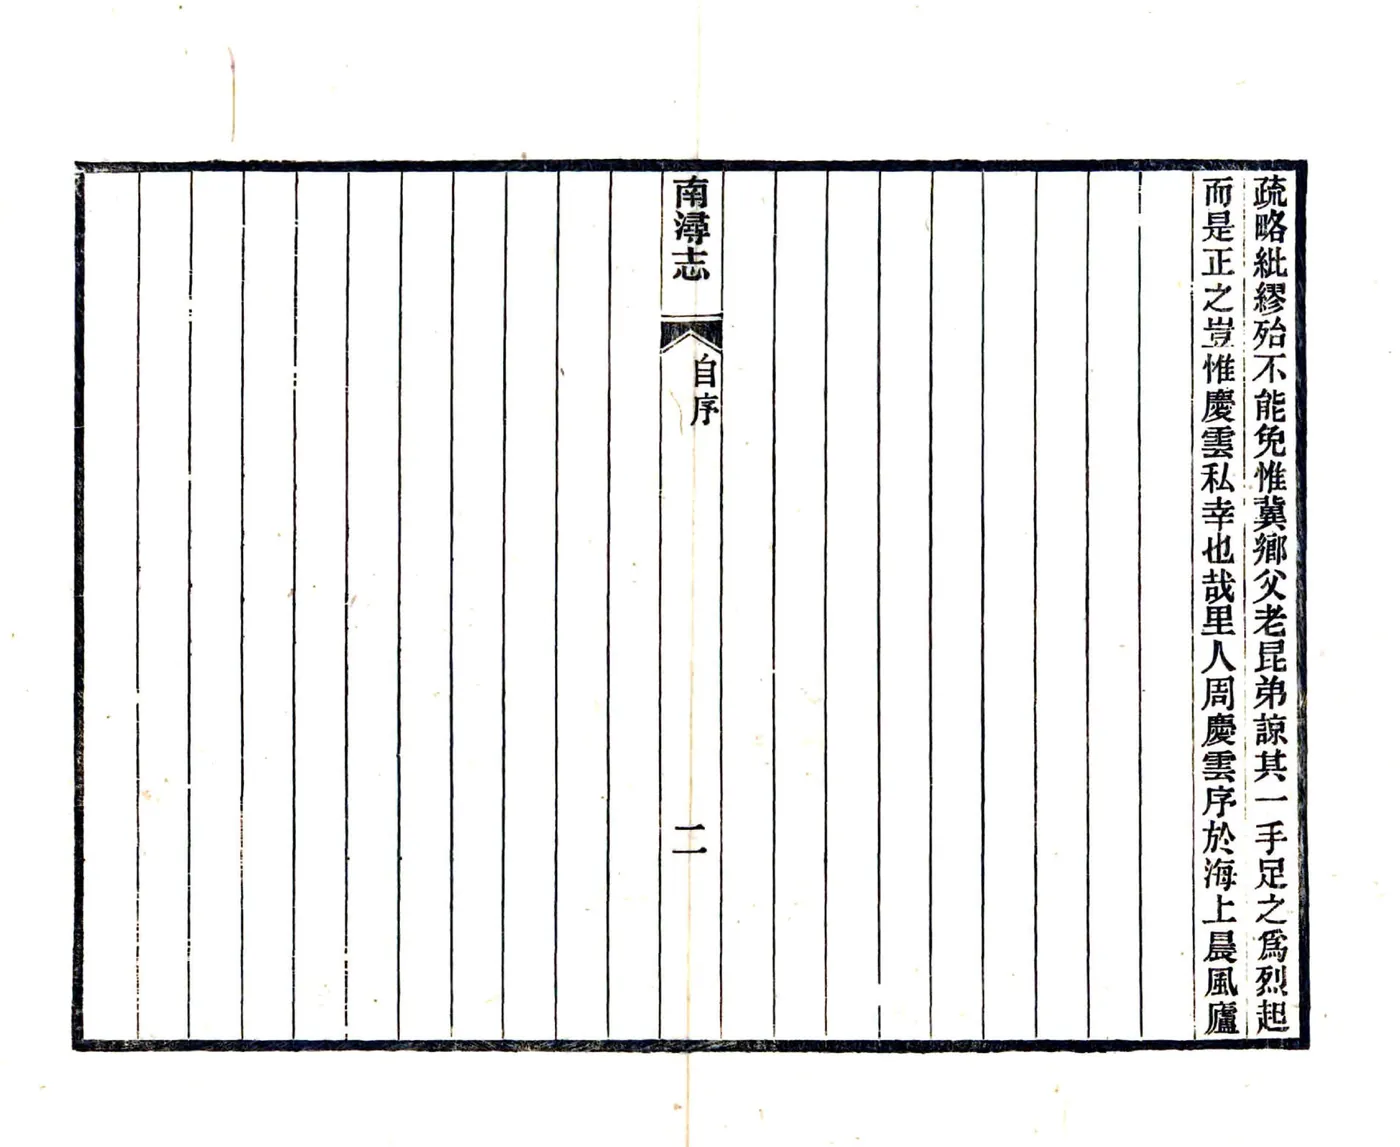 疏略紕繆殆不能免惟冀鄉父老昆弟諒其一手足之爲烈起
而是正之豈惟慶雲私幸也哉里人周慶雲序於海上晨風廬
南潯志
自序
二